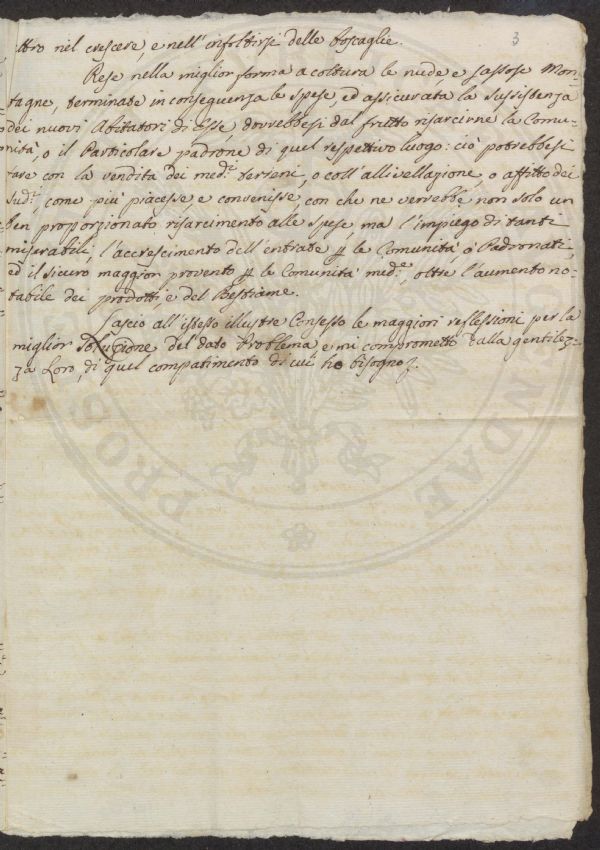 altro nel crescere, e nell'infoltirsi delle boscaglie.
3
Rese nella miglior forma a coltura le nude e sassose Mon-
tagne, terminate in conseguenza le spese, ed assicurata la sussistenza
dei nuovi Abitatori di Esse, dovrebbesi dal frutto risarcirne la Comu-
nità, o il Particolare padrone di quel respettivo luogo: ciò potrebbesi
fare con la vendita dei med:i terreni, o coll'allivellazione, o affitto dei
sud:i, come più piacesse e convenisse con che ne verrebbe non solo un
ben proporzionato risarcimento alle spese ma l'impiego di tanti
miserabili, l'accrescimento dell'entrate p le Comunità, o Padronati,
ed il sicuro maggior provento p le Comunità med:e, oltre l'aumento no-
tabile dei prodotti e del Bestiame.
Lascio all'istesso illustre Consesso le maggiori reflessioni per la
miglior Soluzione del dato Problema e mi comprometto dalla gentilez-
za Loro, di quel compatimento di cui ho bisogno.
PROSPERITATI PUBLICAE AUGENDAE